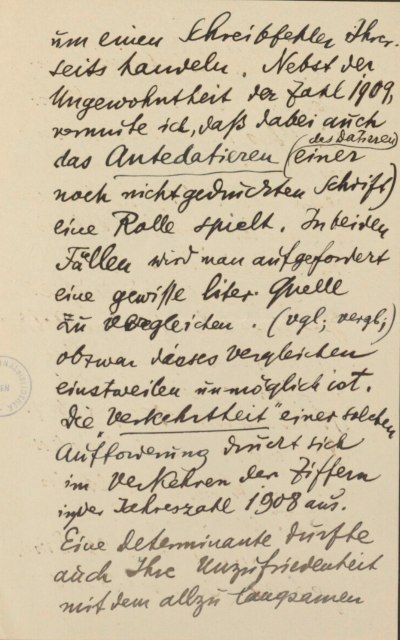 um einen Schreibfehler Ihrer-
seits handeln. Nebst der
Ungewohntheit der Zahl 1909,
vermute ich, daß dabei auch
das Antedatieren (des Datieren)
einer
noch nicht gedruckten Schrift)
eine Rolle spielt. In beiden
Fällen wird man aufgefordert
eine gewisse liter. Quelle
zu vergleichen. (vgl; vergl;)
obzwar dieses Vergleichen
einstweilen unmöglich ist.
Die "Verkehrtheit" einer solchen
Aufforderung drückt sich
im Verkehren der Ziffern
in der Jahreszahl 1908 aus.
Eine Determinante dürfte
auch Ihre Unzufriedenheit
mit dem allzu langsamen